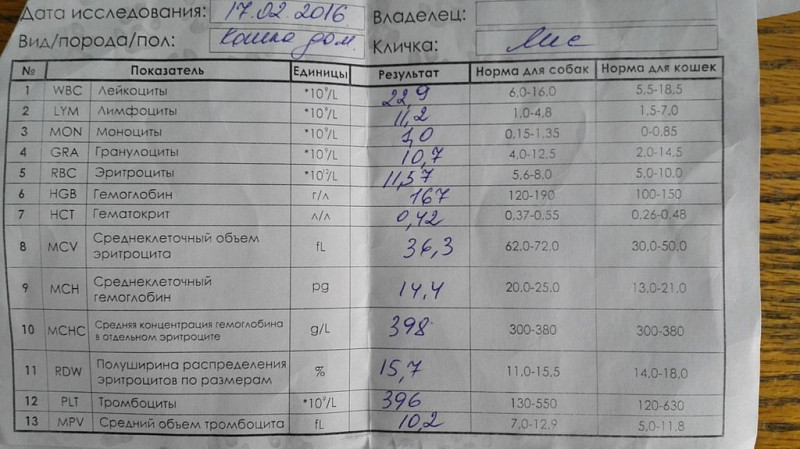 Дата исследования: 17.02.2016 Владелец:
Вид/порода/пол: Кошка дом. Кличка: Лис
№ Показатель Единицы Результат Норма для собак Норма для кошек
1 WBC Лейкоциты *10⁹/L 22,9 6,0-16,0 5,5-18,5
2 LYM Лимфоциты *10⁹/L 11,2 1,0-4,8 1,5-7,0
3 MON Моноциты *10⁹/L 1,0 0,15-1,35 0-0,85
4 GRA Гранулоциты *10⁹/L 10,7 4,0-12,5 2,0-14,5
5 RBC Эритроциты *10¹²/L 11,57 5,6-8,0 5,0-10,0
6 HGB Гемоглобин г/л 167 120-190 100-150
7 HCT Гематокрит л/л 0,42 0,37-0,55 0,26-0,48
8 MCV Среднеклеточный объем эритроцита fL 36,3 62,0-72,0 30,0-50,0
9 MCH Среднеклеточный гемоглобин pg 14,4 20,0-25,0 13,0-21,0
10 MCHC Средняя концентрация гемоглобина в отдельном эритроците g/L 398 300-380 300-380
11 RDW Полуширина распределения эритроцитов по размерам % 15,7 11,0-15,5 14,0-18,0
12 PLT Тромбоциты *10⁹/L 396 130-550 120-630
13 MPV Средний объем тромбоцита fL 10,2 7,0-12,9 5,0-11,8